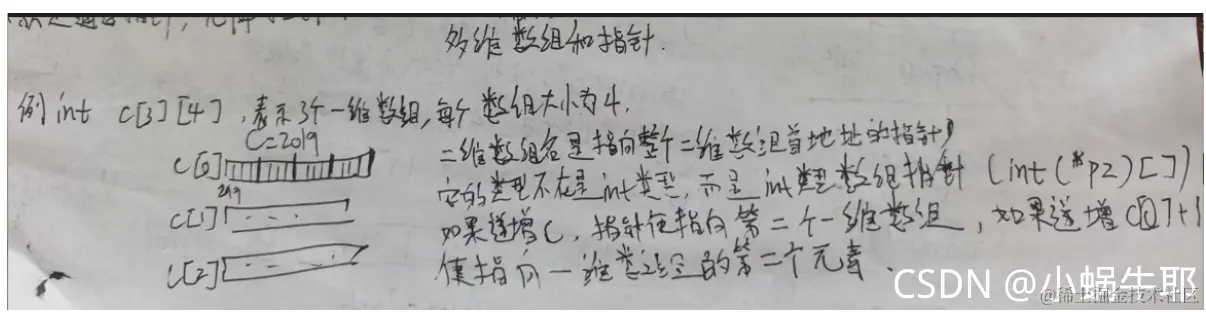 多维数组和指针.
例 int c[3][4],表示3个一维数组,每个数组大小为4.
C=2019
c[0]
2019
c[1]
c[2]
二维数组名是指向整个二维数组首地址的指针,
它的类型不在是int类型,而是int类型数组指针 (int(*p2)[])
如果递增c,指针便指向第二个一维数组,如果递增c[0]+1
便指向一维数组的第二个元素.
CSDN @小蜗牛耶
@稀土掘金技术社区